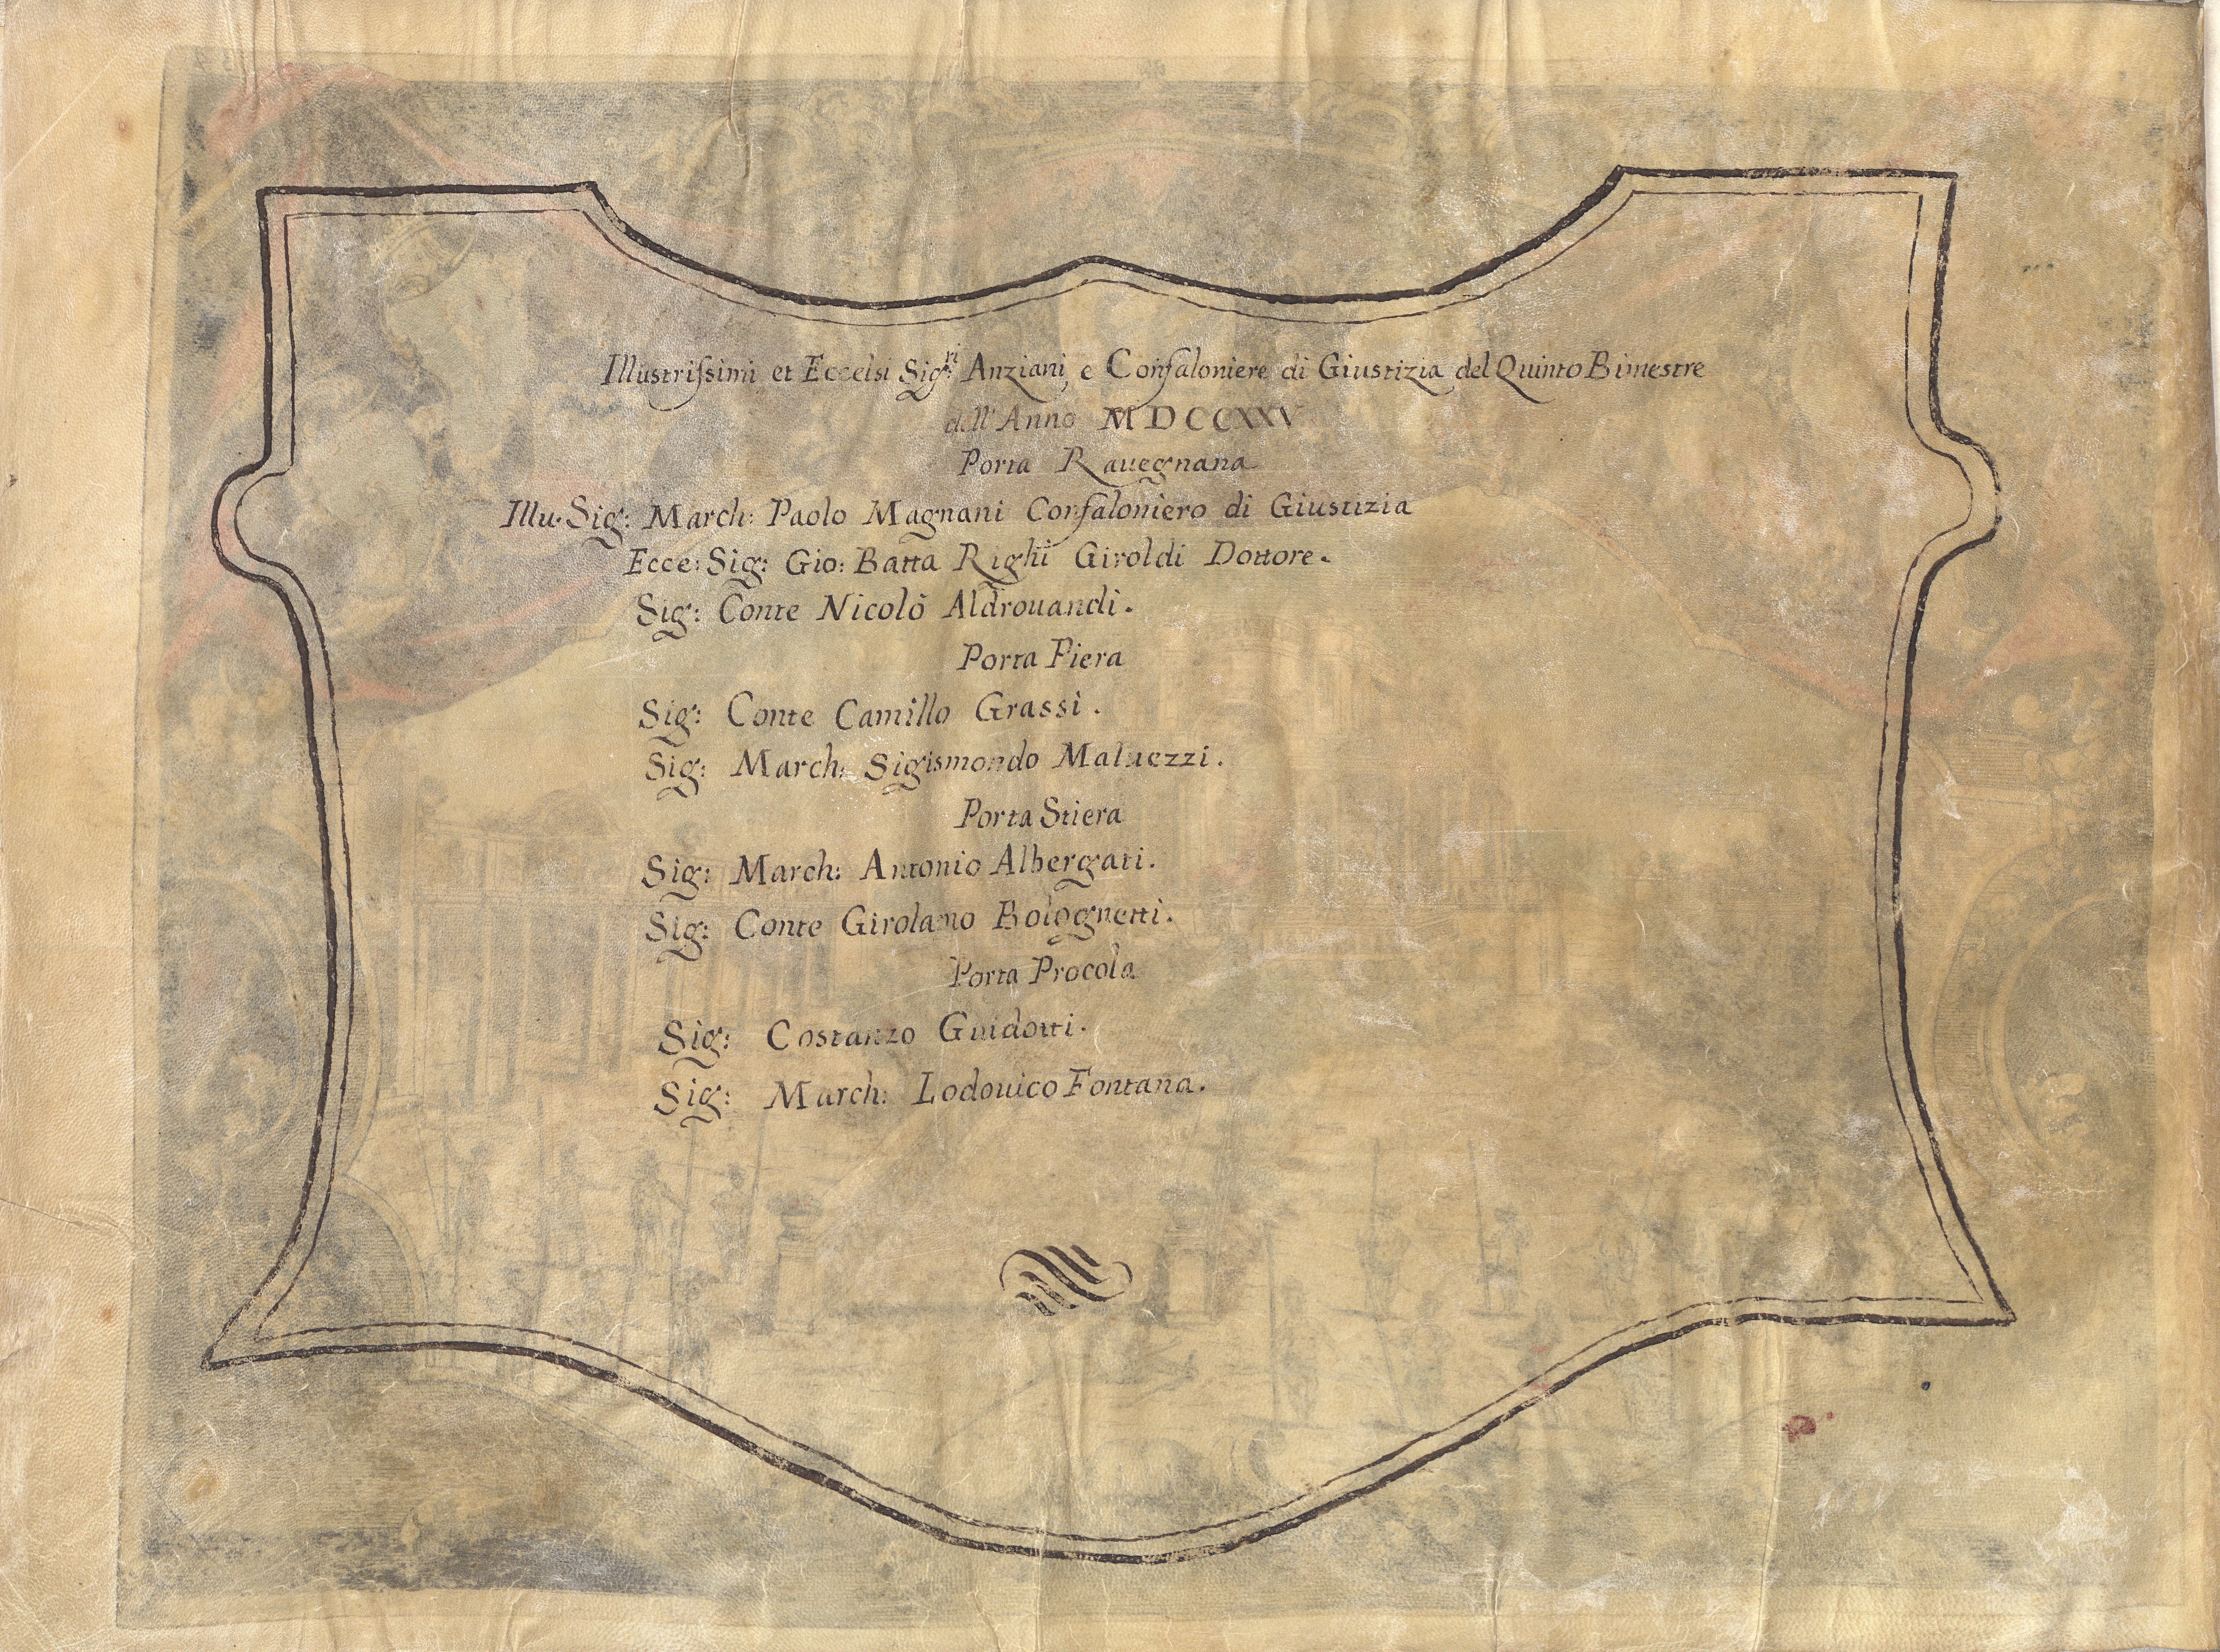 Illustrissimi et Eccelsi Sig:ri Anziani, e Confaloniere di Giustizia del Quinto Bimestre
dell'Anno MDCCXXV
Porta Rauegnana
Illu: Sig: March: Paolo Magnani Confaloniero di Giustizia
Ecce: Sig: Gio: Batta Righi Giroldi Dottore.
Sig: Conte Nicolò Aldrouandi.
Porta Piera
Sig: Conte Camillo Grassi.
Sig: March: Sigismondo Maluezzi.
Porta Stiera
Sig: March: Antonio Albergati.
Sig: Conte Girolamo Bolognetti.
Porta Procola
Sig: Costanzo Guidotti.
Sig: March: Lodouico Fontana.